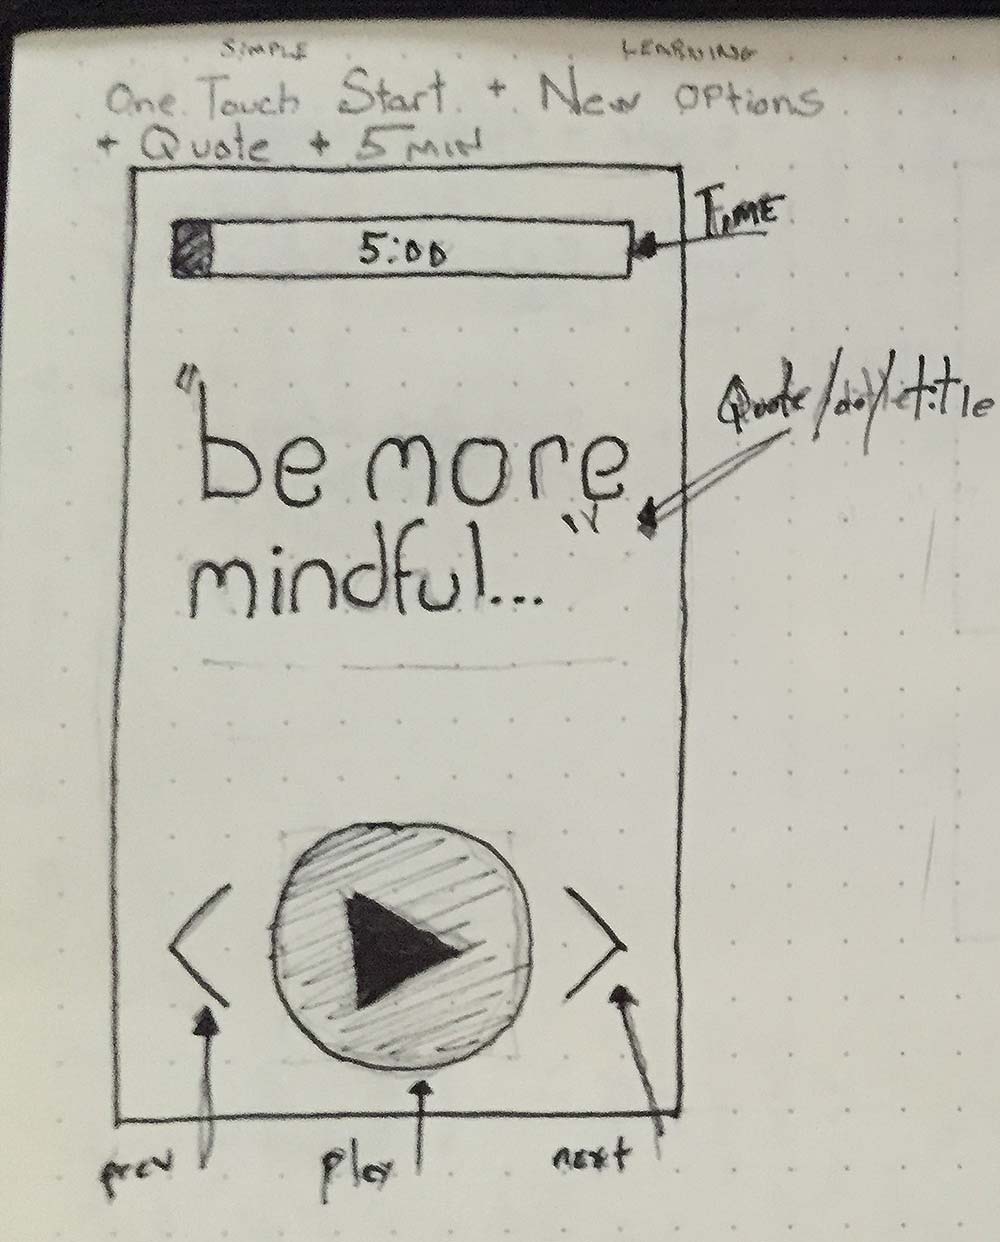 SIMPLE LEARNING
One Touch Start + New options
+ Quote + 5 MIN
TIME
5:00
Quote/ /title
"be more
mindful..."
prev play next